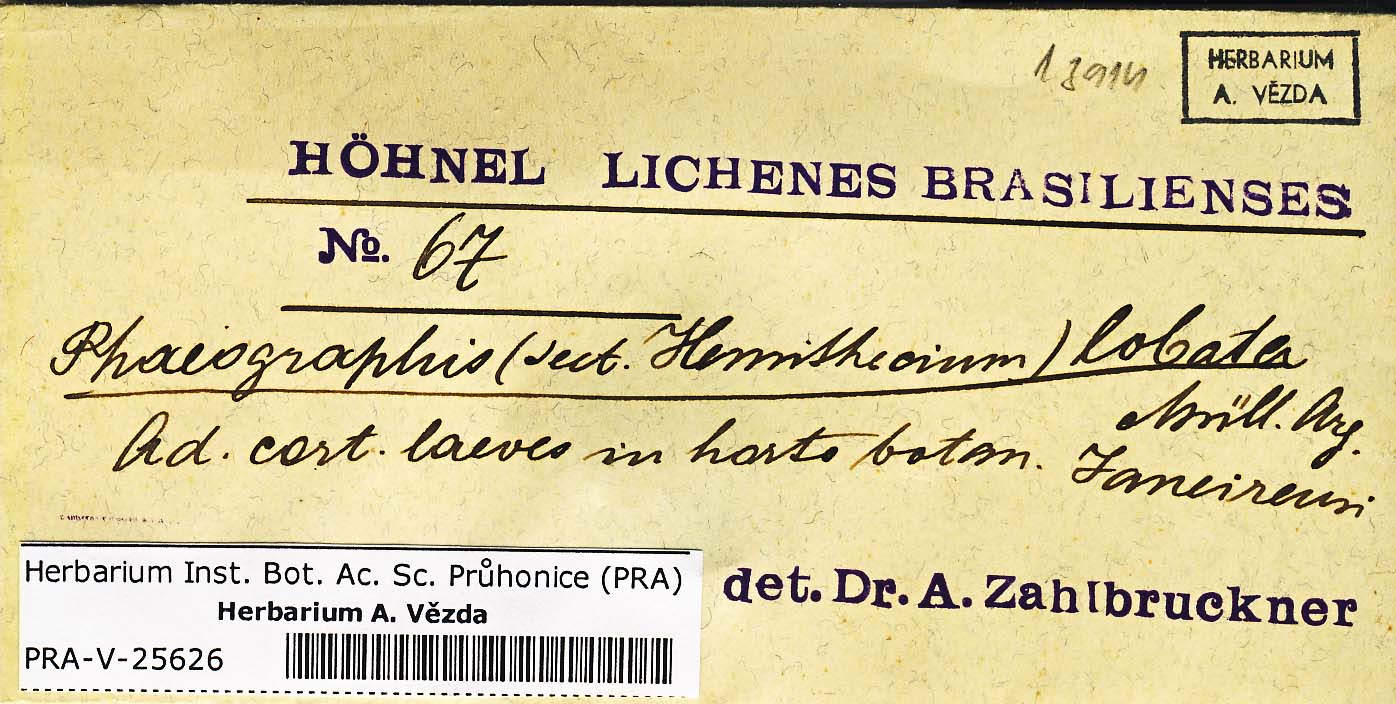 13914
HERBARIUM
A. VĚZDA
HÖHNEL LICHENES BRASILIENSES
No. 67
Phaeographis (sect. Hemithecium) lobata
Müll. Arg.
Ad. cort. laeves in horto botan. Janeirensi
det. Dr. A. Zahlbruckner
Herbarium Inst. Bot. Ac. Sc. Průhonice (PRA)
Herbarium A. Vězda
PRA-V-25626